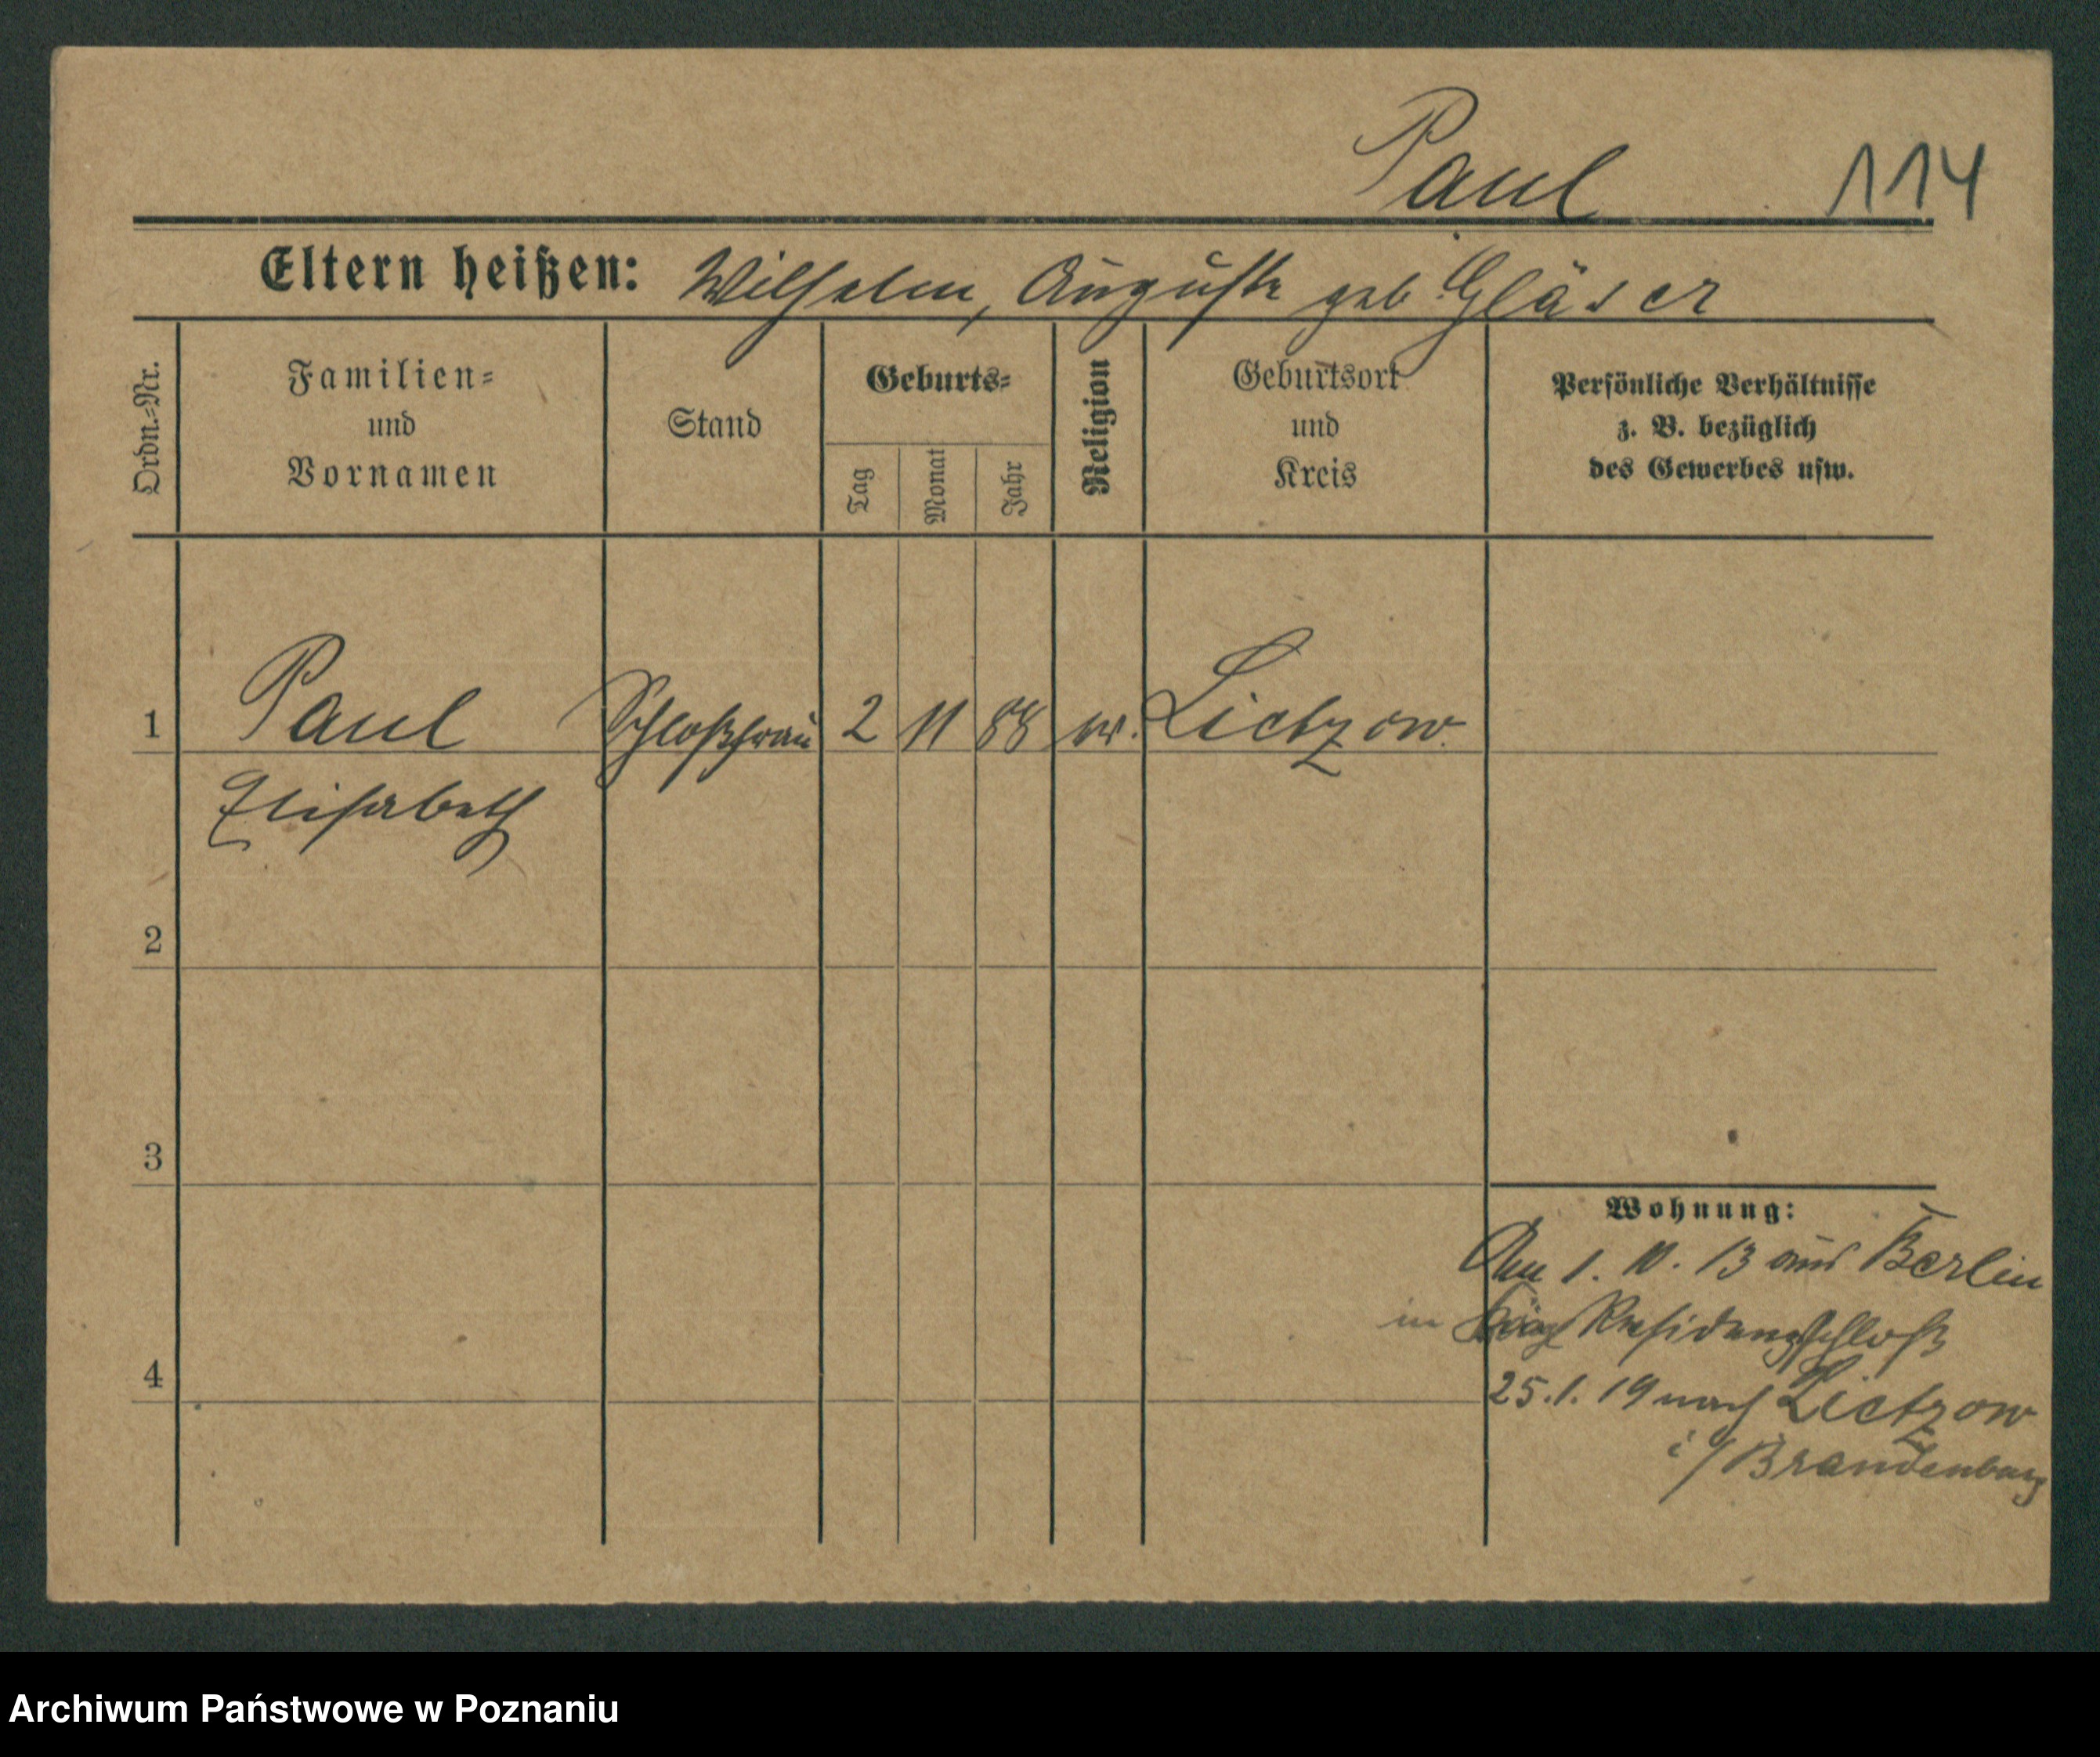 Paul 114
Eltern heißen: Wilhelm, Auguste geb Gläser
Ordn.-Nr.
Familien-
und
Vornamen
Stand
Geburts-
Tag
Monat
Jahr
Religion
Geburtsort
und
Kreis
Persönliche Verhältnisse
z. B. bezüglich
des Gewerbes usw.
1 Paul Schloßfrau 2 11 88 Lietzow.
Elisabeth
2
3
Wohnung:
1. 10. 13 aus Berlin
in Residenzschloß
4
25. 1. 19 nach Lietzow
i/Brandenburg
Archiwum Państwowe w Poznaniu